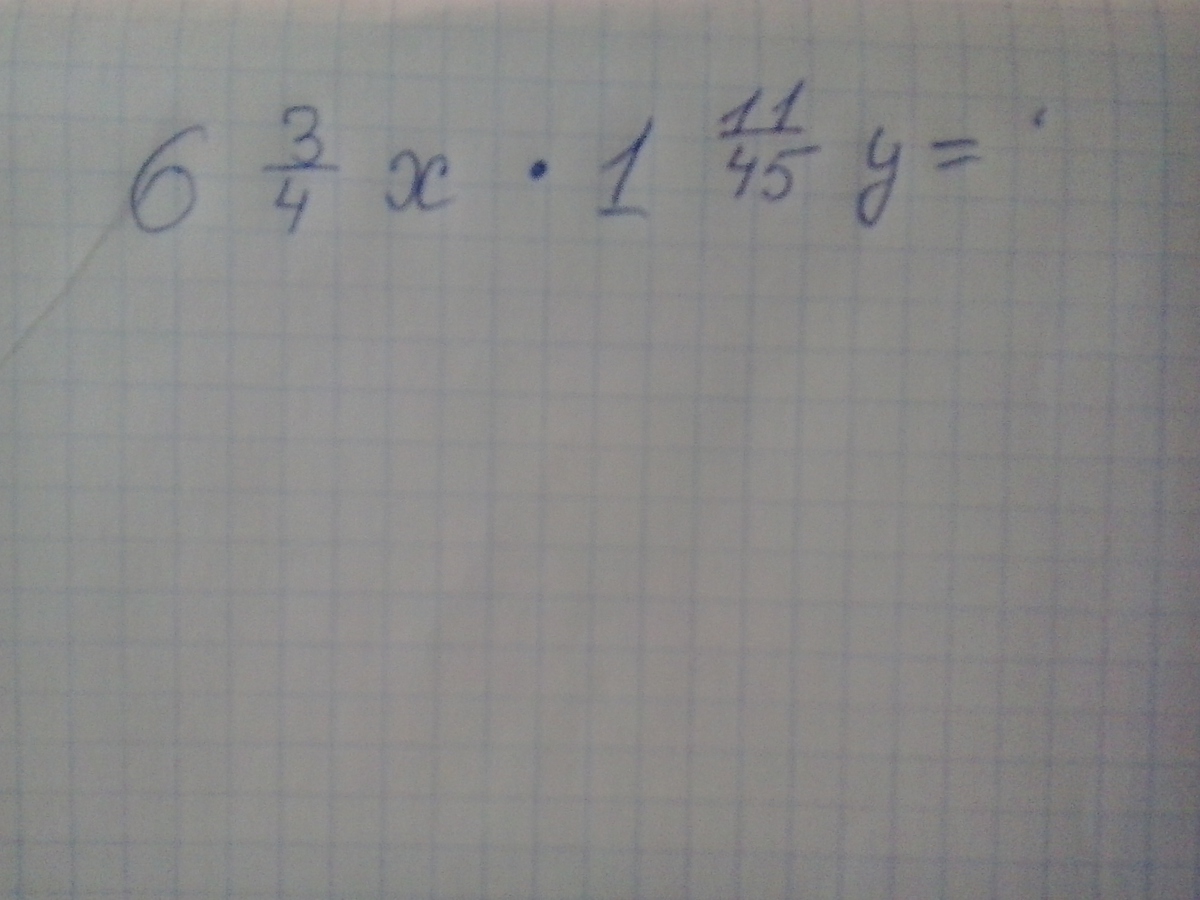 6 3/4 x · 1 11/45 y =